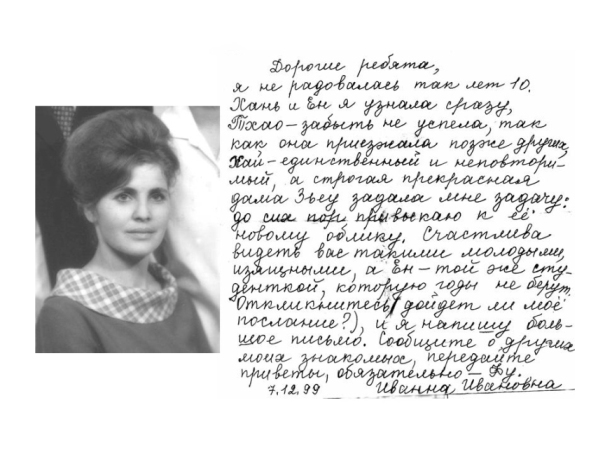 Дорогие ребята,
я не радовалась так лет 10.
Хань и Ен я узнала сразу,
Тхао – забыть не успела, так
как она приезжала позже других,
Хай – единственный и неповтори-
мый, а строгая прекрасная
дама Зьеу задала мне задачу:
до сих пор привыкаю к её
новому облику. Счастлива
видеть вас такими молодыми,
изящными, а Ен – той же сту-
денткой, которую годы не берут.
Откликнитесь (дойдет ли моё
послание?), и я напишу боль-
шое письмо. Сообщите о других
моих знакомых, передайте
приветы, обязательно – Фу.
7.12.99 Иванна Ивановна